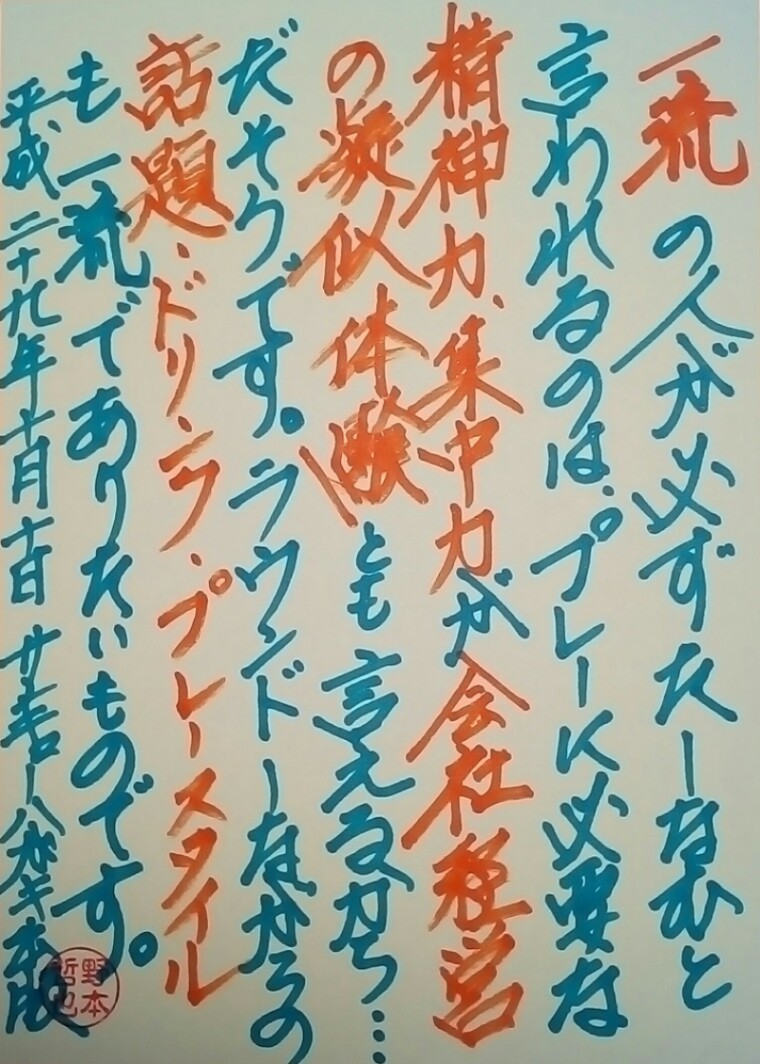 一流の人が必ずたしなむと
言われるのは、プレーに必要な
精神力、集中力が会社経営
の擬似体験とも言えるから…
だそうです。ラウンドしながらの
話題、ドリンク、プレースタイル
も一流でありたいものです。
平成二十九年十月 ハガキ
野本
哲也